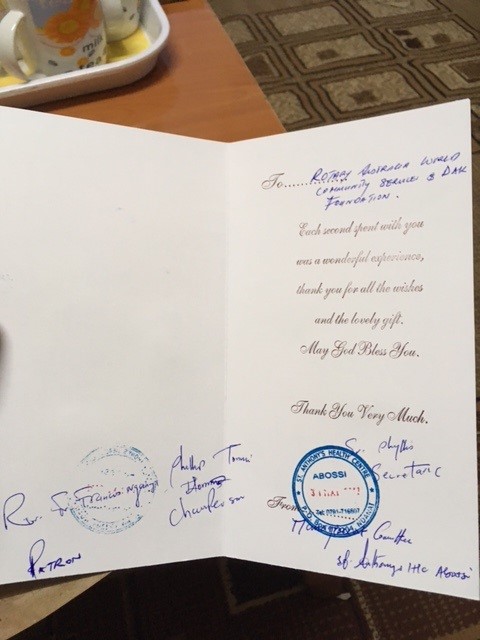 To.......... ROTARY AUSTRALIA WORLD
COMMUNITY SERVICE & DAK
FOUNDATION.
Each second spent with you
was a wonderful experience,
thank you for all the wishes
and the lovely gift.
May God Bless You.
Thank You Very Much.
Sr. Phyllis
Secretary
ST. ANTHONY'S HEALTH CENTRE
ABOSSI
From
St. Anthony's H/C Abossi
Rev. Fr. Francis
PATRON
Phillip
Chairperson